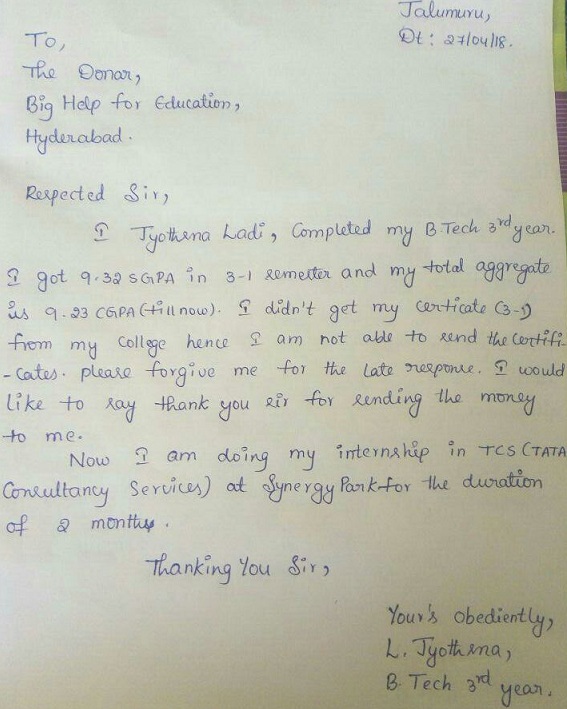 Jalumuru,
Dt: 27/04/18.
To,
The Donar,
Big Help for Education,
Hyderabad.
Respected Sir,
I Jyothsna Ladi, Completed my B.Tech 3rd year.
I got 9.32 SGPA in 3-1 semester and my total aggregate
is 9.23 CGPA (till now). I didn't get my certicate (3-1)
from my College hence I am not able to send the certifi-
-cates. please forgive me for the late response. I would
like to say thank you sir for sending the money
to me.
Now I am doing my internship in TCS (TATA
Consultancy Services) at Synergy Park for the duration
of 2 months.
Thanking You Sir,
Your's obediently,
L. Jyothsna,
B. Tech 3rd year.